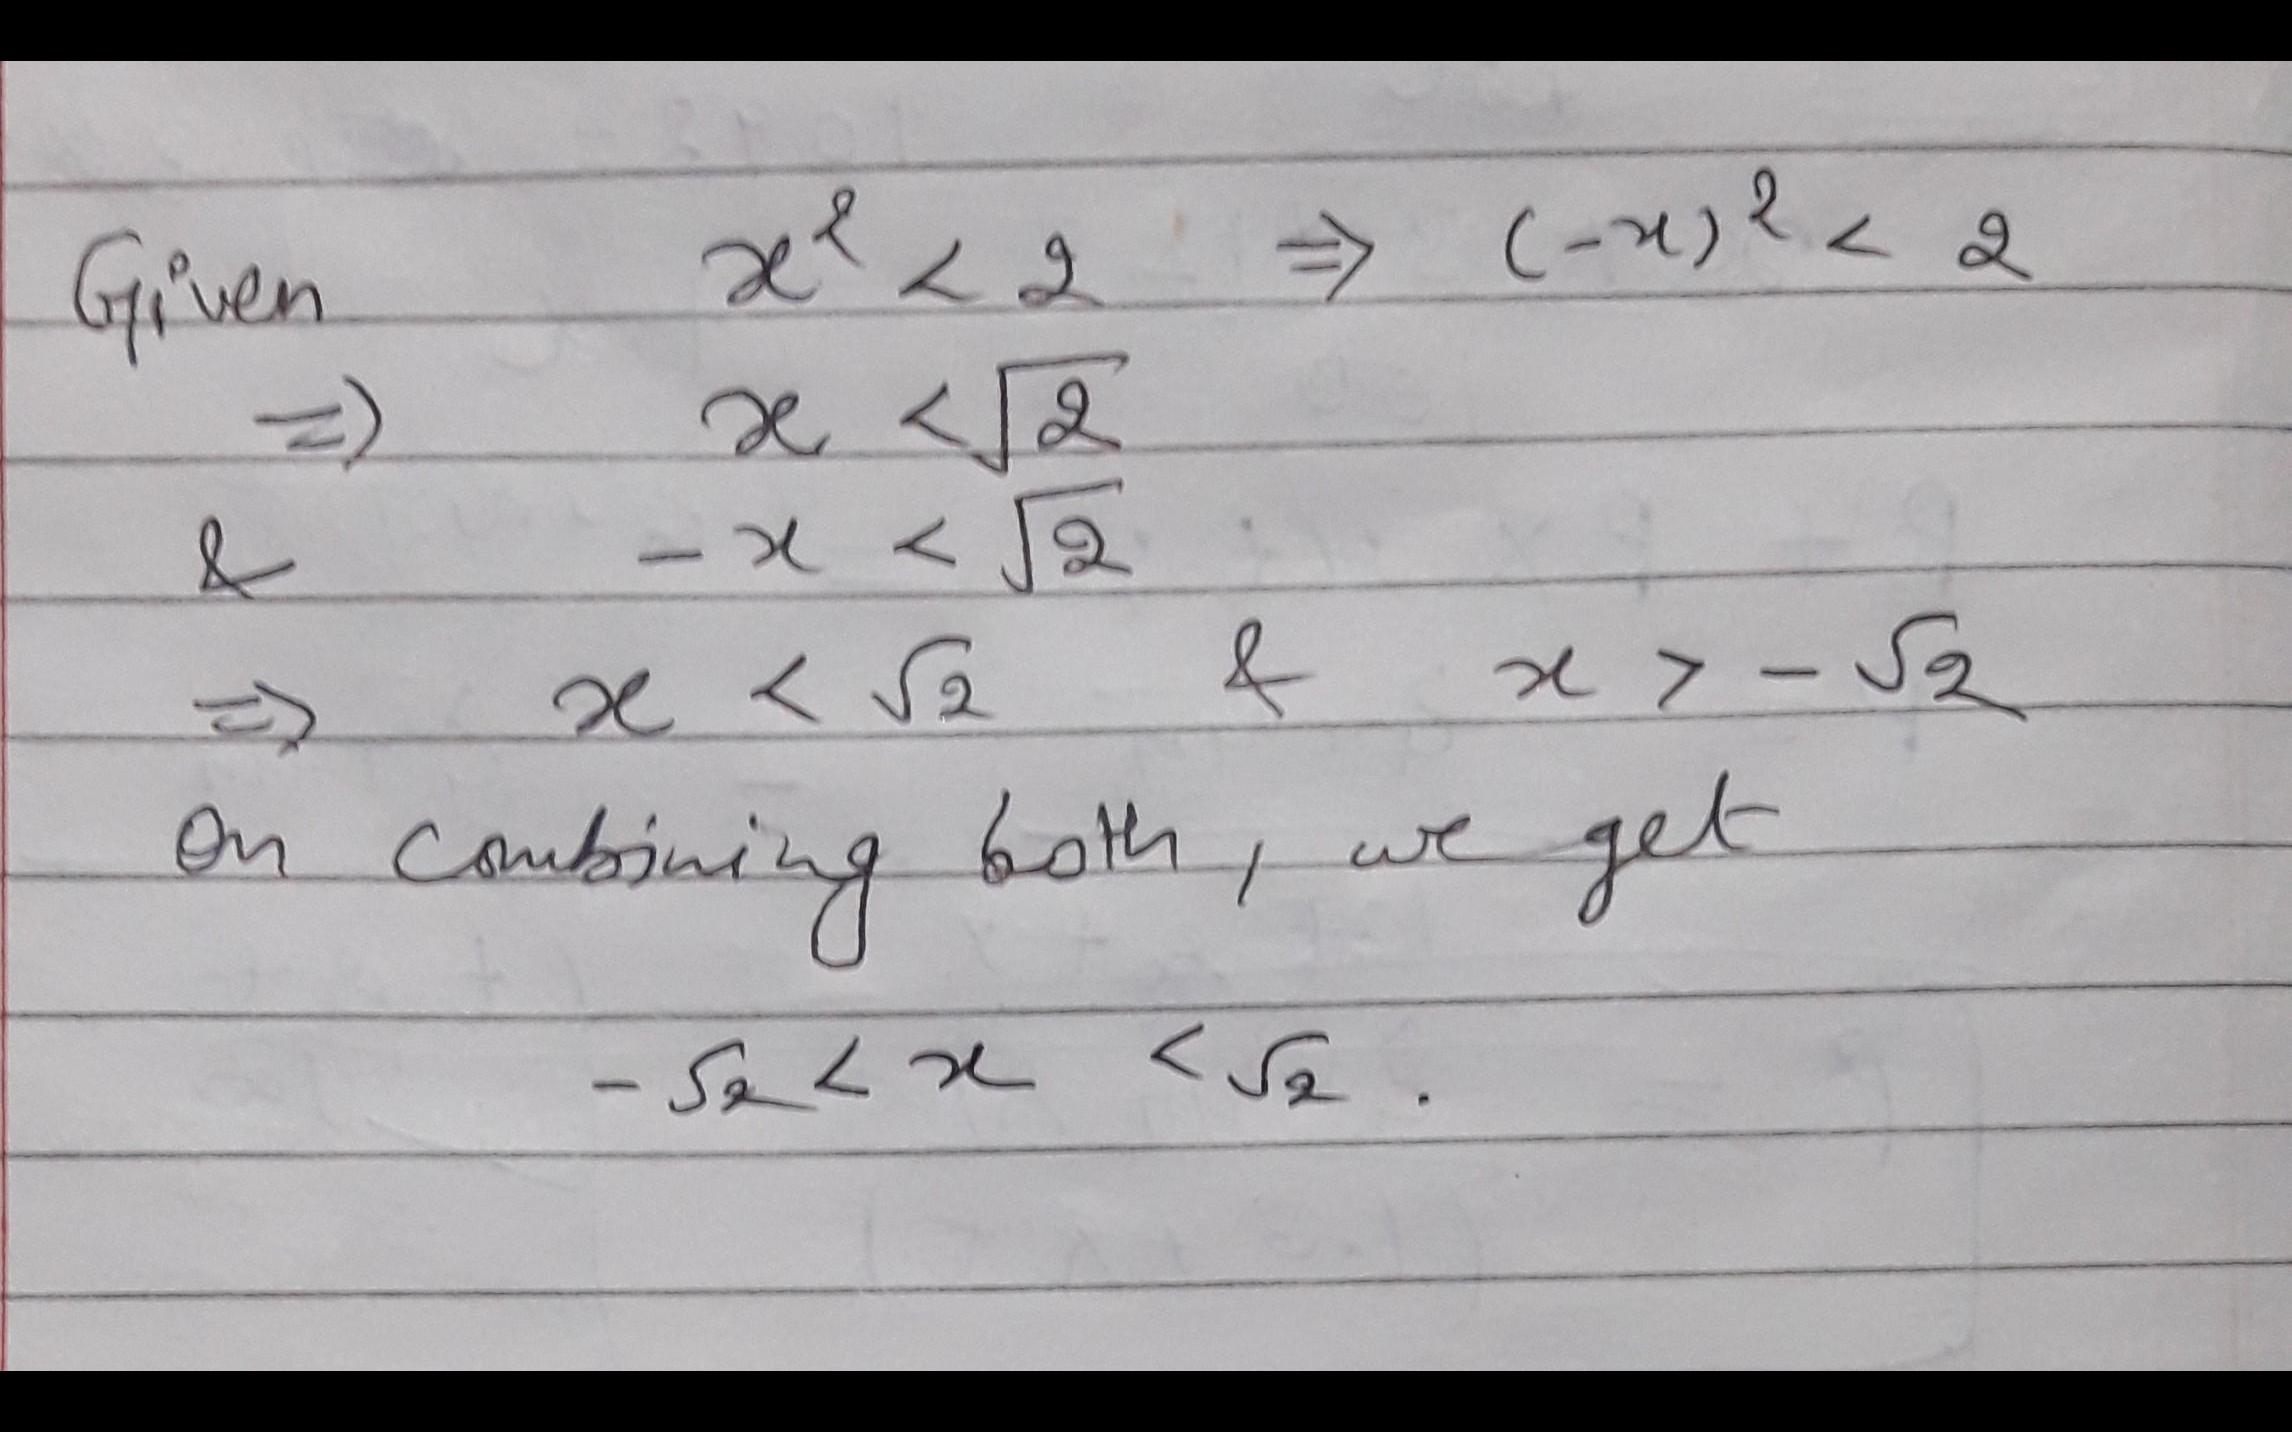 Given x² < 2 ⇒ (-x)² < 2
⇒ x < √2
& -x < √2
⇒ x < √2 & x > -√2
On combining both, we get
-√2 < x < √2.